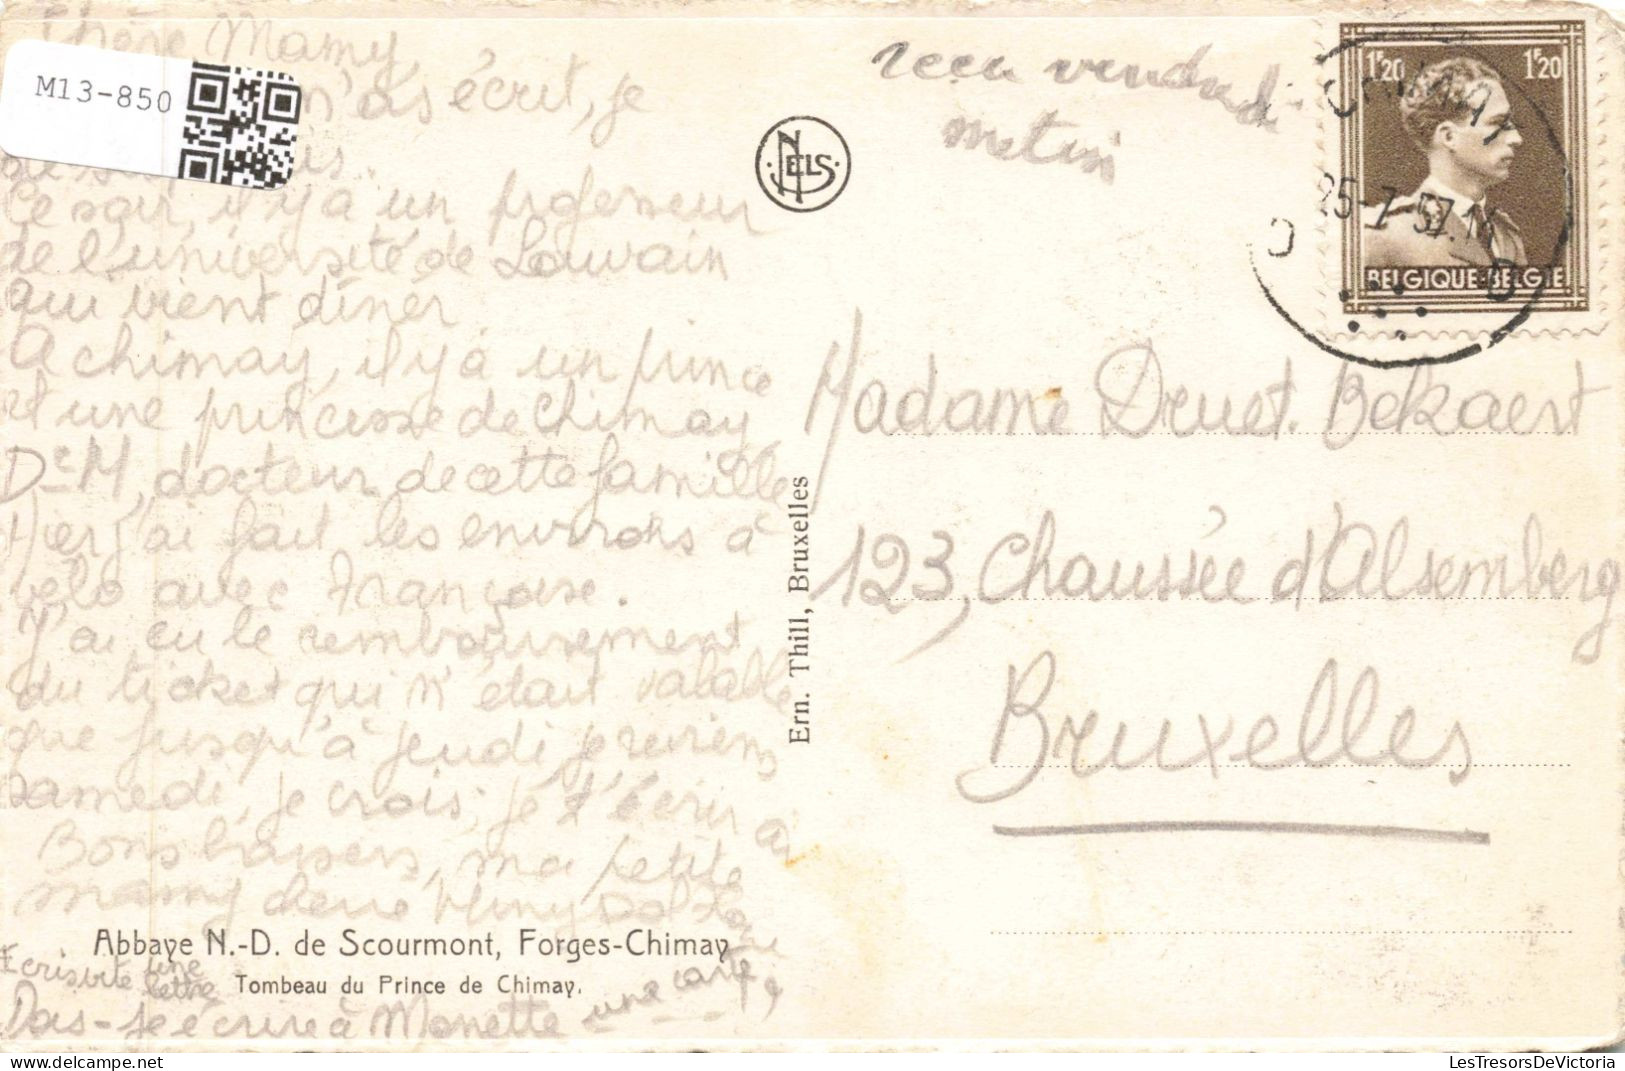 Chère Mamy,
M13-850
m'as écrit, je
Ce soir, il y a un professeur
de l'université de Louvain
qui vient dîner
A Chimay, il y a un prince
et une princesse de Chimay
Dr M, docteur de cette famille
Hier j'ai fait les environs à
vélo avec Françoise.
J'ai eu le remboursement
du ticket qui n'était valable
que jusqu'à jeudi, je reviens
samedi, je crois, je t'écrir ai
Bons baisers, ma petite
mamy chérie
Abbaye N.-D. de Scourmont, Forges-Chimay
Tombeau du Prince de Chimay.
Ecris vite une lettre
Dois-je écrire à Monette une carte ?
Ern. Thill, Bruxelles
NELS
recu vendredi
matin
CHIMAY
25-7-57.
1F20 1F20
BELGIQUE-BELGIE
Madame Druet. Bekaert
123, Chaussée d'Alsemberg
Bruxelles
LesTresorsDeVictoria